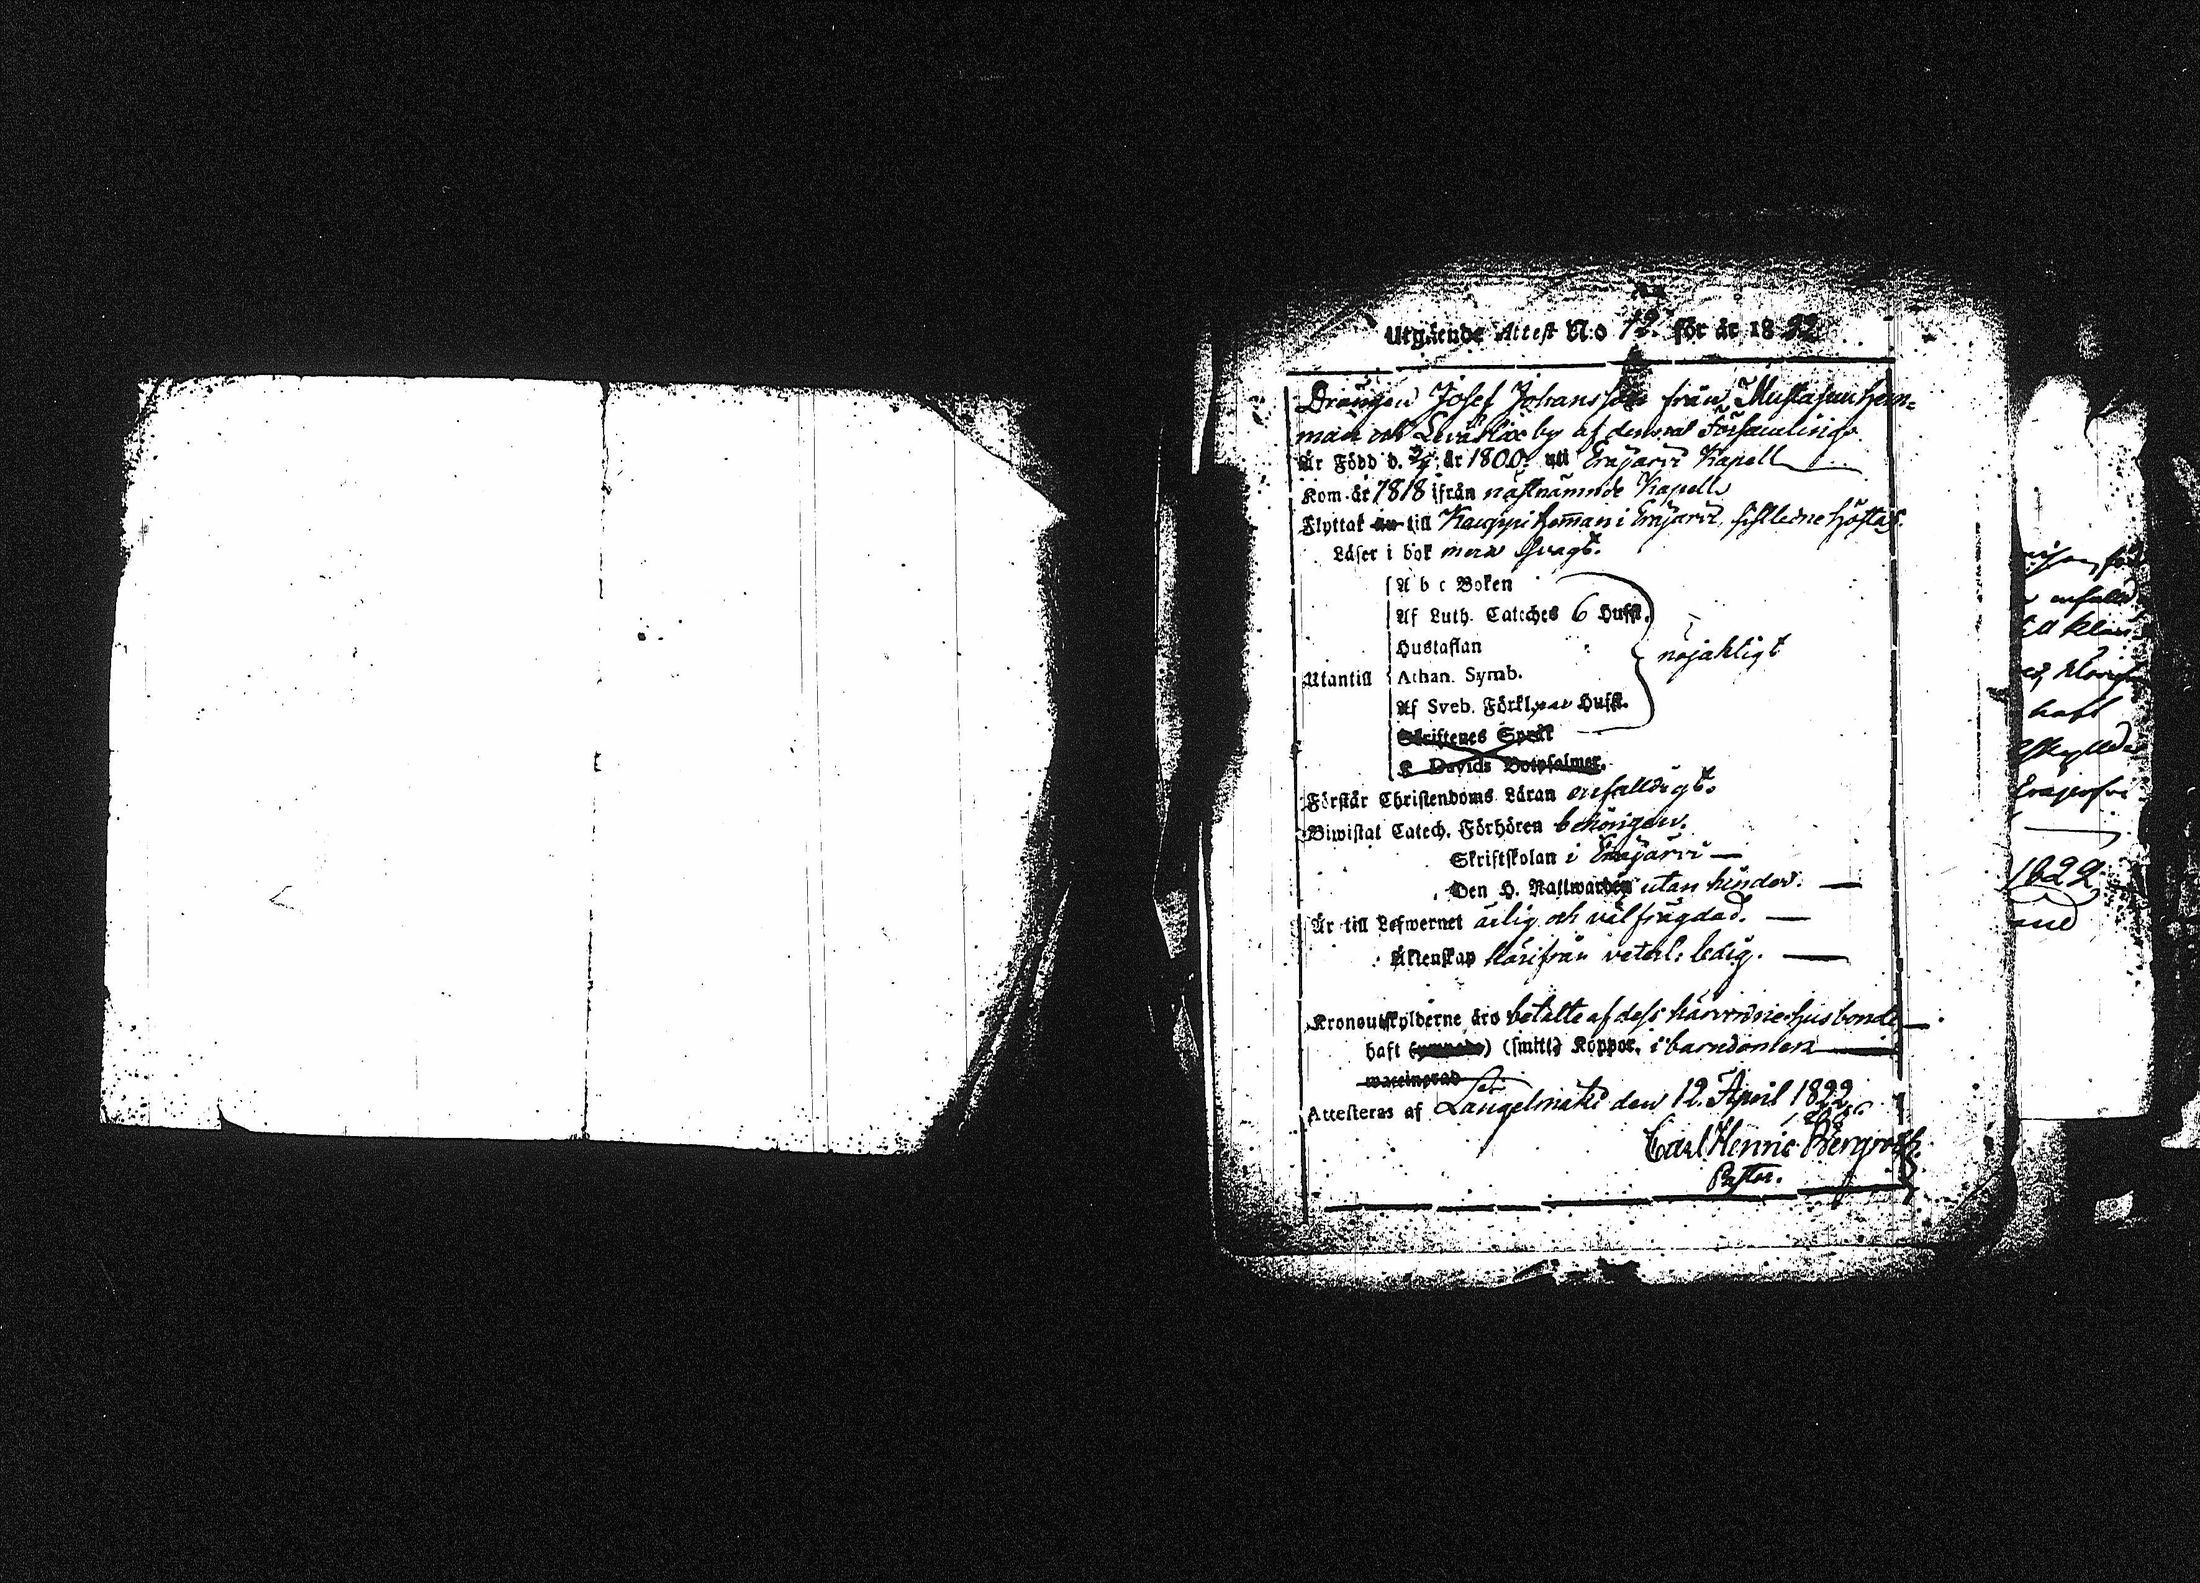 Utgående Attest N:o 12. för år 1822
Drängen Josef Johansson från Mustajan hem=
man och Leväslax by af denna Församling
Är Född d. år 1800. uti Eräjärvi Kapell
Kom år 1818 ifrån nästnämnde Kapell
Flyttat nu till Kauppi heman i Eräjärvi, sistledne höstas.
Läser i bok mera svagt.
A b c Boken
Af Luth. Catches 6 Hufst.
Hustaflan
nöjaktigt
Utantill Athan. Symb.
Af Sveb. Förkl. Hufst.
Skriftenes Språk
K Davids Botpsalmer.
Förstår Christendoms Läran enfalldigt.
Biwistat Catech. Förhören behörigen.
Skriftskolan i Eräjärvi —
Den H. Nattwarden utan hinder. —
Är till Lefwernet ärlig och välfrägdad. —
Äktenskap härifrån veterl: ledig. —
Kronoutskylderne äro betalte af dess härvarne husbonde —
haft (ympade) (smitt) Koppor. i barndomen —
waccinerad
Attesteras af Längelmäki den 12. April 1822.
Carl Henric Bergroth.
Pastor.
1822